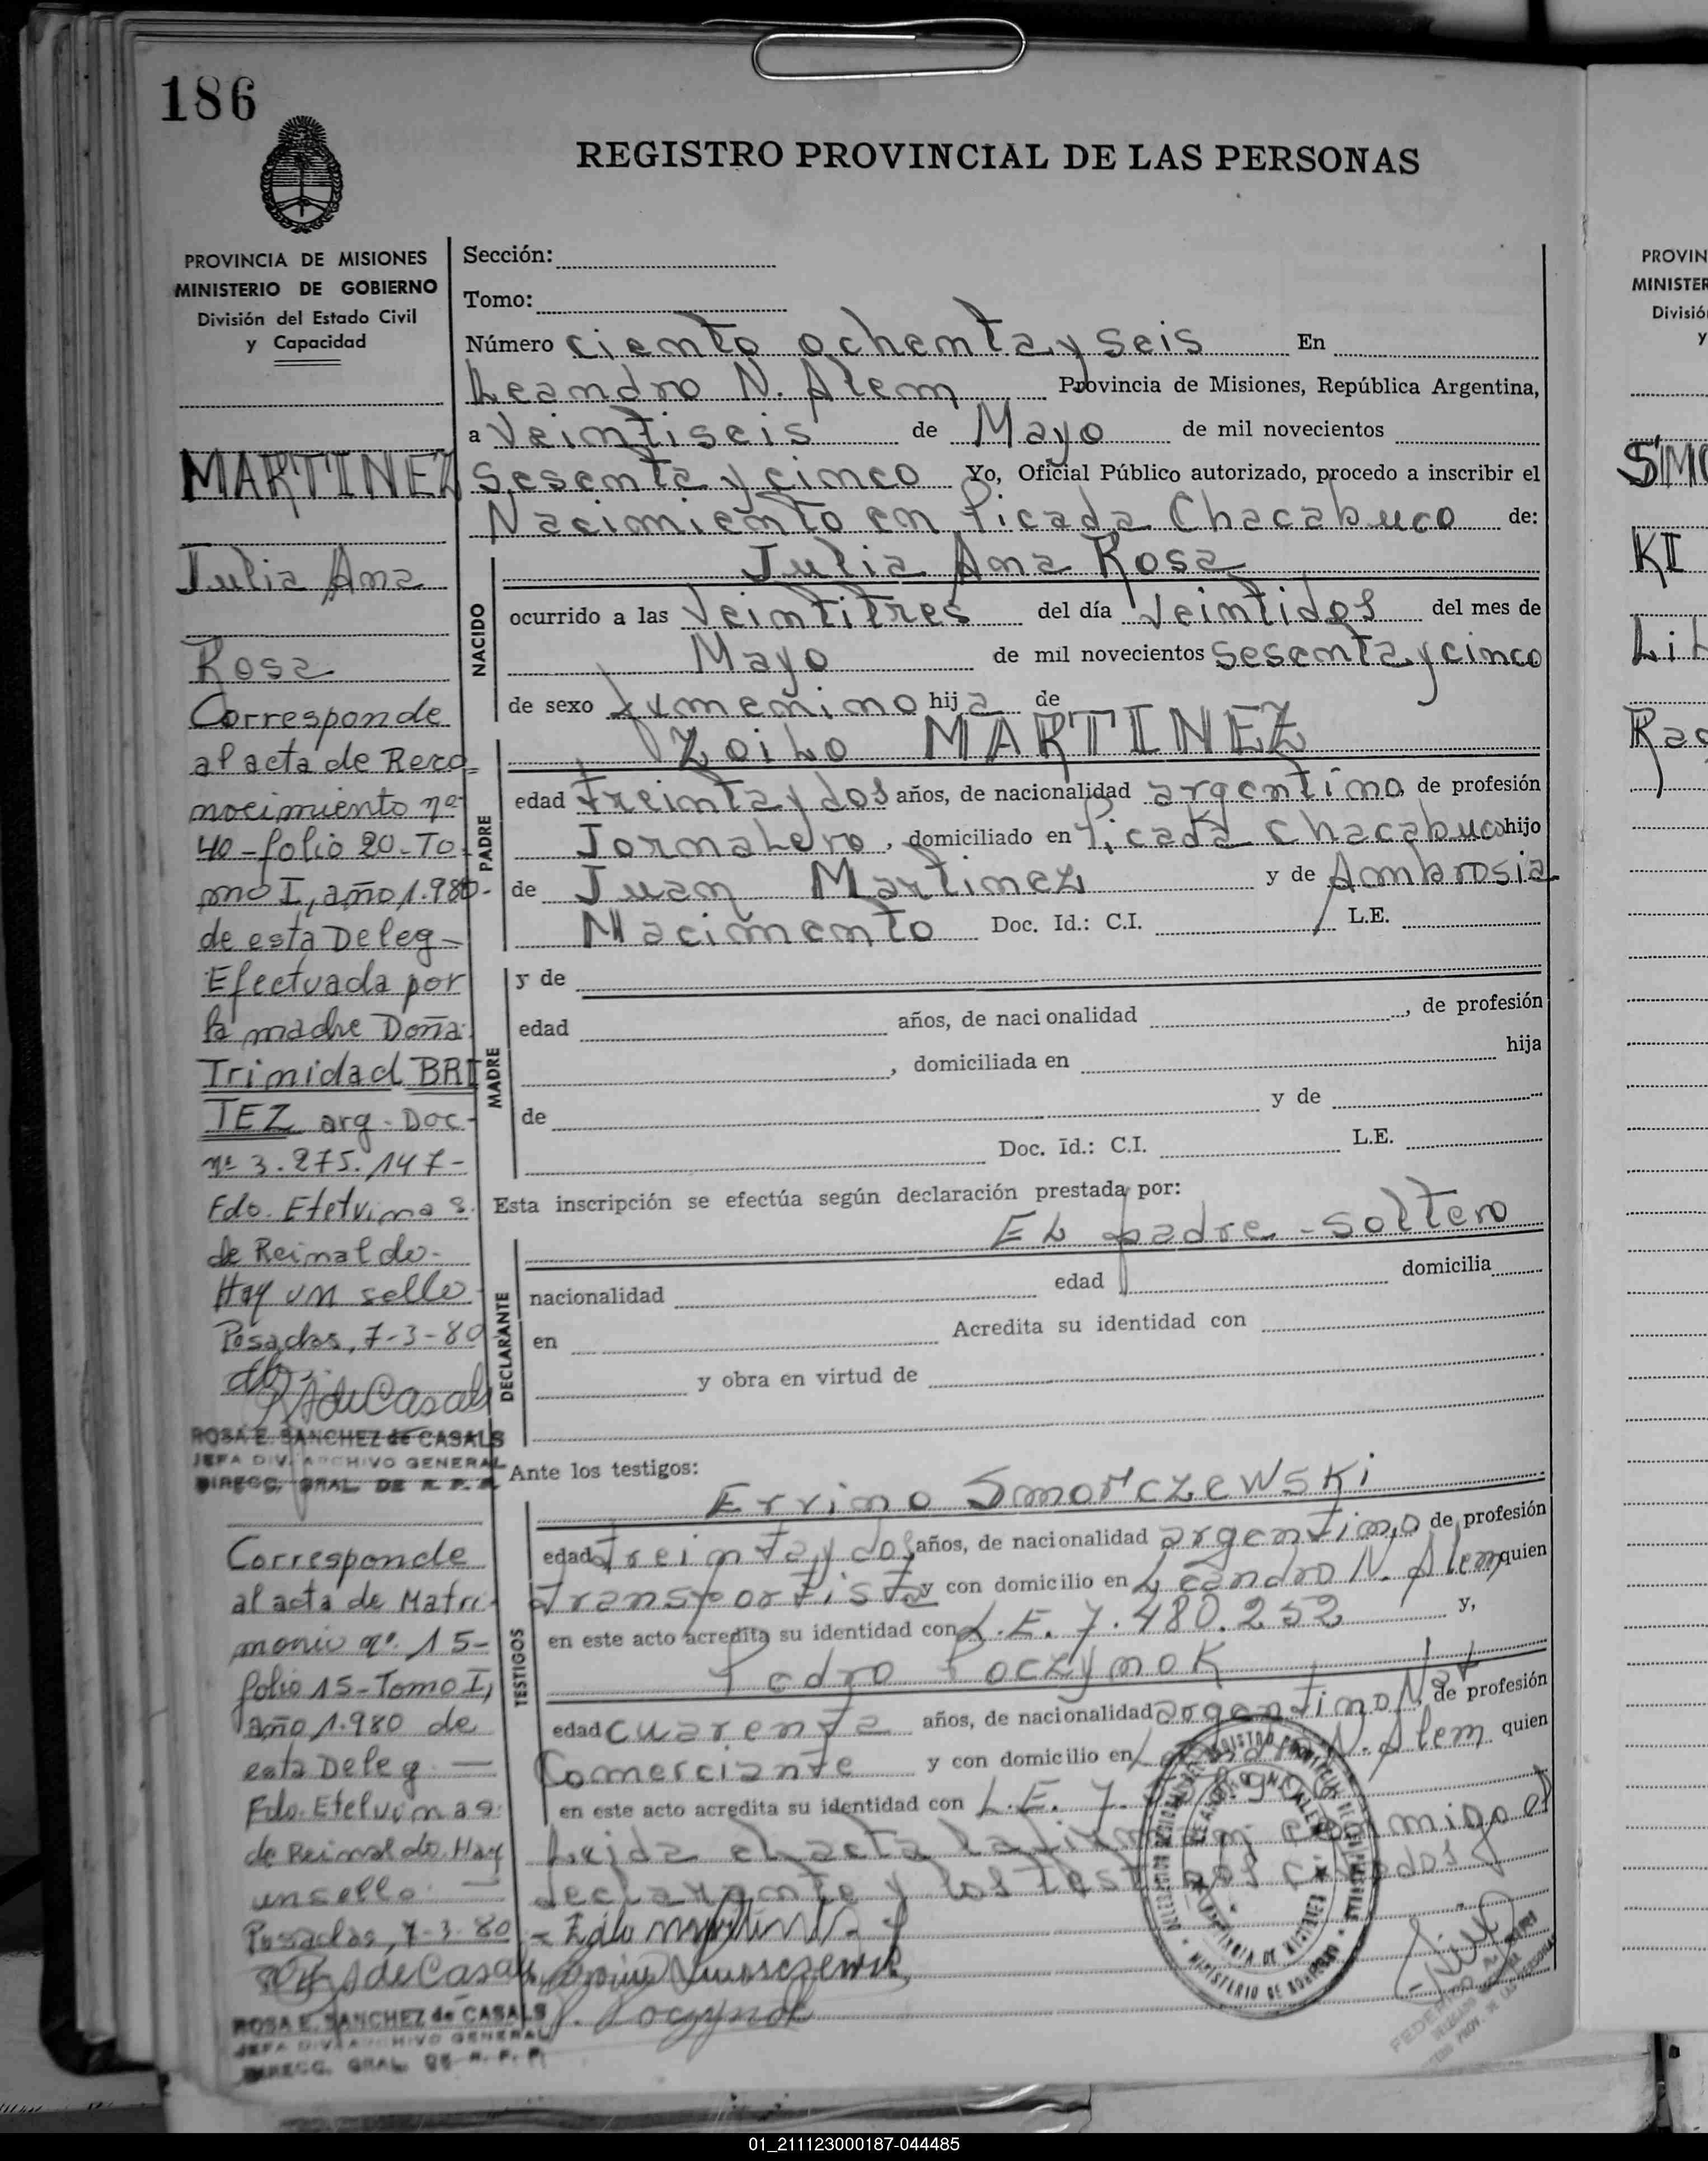 186
REGISTRO PROVINCIAL DE LAS PERSONAS
PROVINCIA DE MISIONES
MINISTERIO DE GOBIERNO
División del Estado Civil
y Capacidad
MARTINEZ
Julia Ana
Rosa
Corresponde
al acta de Reco=
nocimiento nº
40-folio 20-To
mo I, año 1.980-
de esta Deleg-
Efectuada por
la madre Doña
Trinidad BRI
TEZ arg. Doc-
nº 3.275.147-
Fdo. Etelvina S.
de Reinaldo-
Hay un sello-
Posadas, 7-3-80
ROSA E. SANCHEZ de CASALS
JEFA DIV. ARCHIVO GENERAL
DIRECC. GRAL. DE R. P. P.
Corresponde
al acta de Matri-
monio nº. 15-
folio 15-Tomo I,
año 1.980 de
esta Deleg. —
Fdo. Etelvina S.
de Reinaldo. Hay
un sello. —
Posadas, 7-3-80
ROSA E. SANCHEZ de CASALS
JEFA DIV. ARCHIVO GENERAL
DIRECC. GRAL. DE R. P. P.
Sección:
Tomo:
Número ciento ochenta y seis En
Leandro N. Alem Provincia de Misiones, República Argentina,
a Veintiseis de Mayo de mil novecientos
sesenta y cinco Yo, Oficial Público autorizado, procedo a inscribir el
Nacimiento en Picada Chacabuco de:
NACIDO
Julia Ana Rosa
ocurrido a las Veintitres del día Veintidos del mes de
Mayo de mil novecientos sesenta y cinco
de sexo fumenino hija de
PADRE
Zoilo MARTINEZ
edad treinta y dos años, de nacionalidad argentino, de profesión
Jornalero, domiciliado en Picada Chacabuco hijo
de Juan Martinez y de Ambrosia
Nacimento Doc. Id.: C.I. L.E.
MADRE
y de
edad años, de nacionalidad , de profesión
, domiciliada en hija
de y de
Doc. Id.: C.I. L.E.
Esta inscripción se efectúa según declaración prestada por:
DECLARANTE
El padre - soltero
nacionalidad edad domicilia
en Acredita su identidad con
y obra en virtud de
Ante los testigos:
TESTIGOS
Errino Smorczewski
edad treinta y dos años, de nacionalidad argentino de profesión
transportista y con domicilio en Leandro N. Alem quien
en este acto acredita su identidad con L.E. 7.480.252 y,
Pedro Poczynok
edad cuarenta años, de nacionalidad argentino Nat, de profesión
Comerciante y con domicilio en Leandro N. Alem quien
en este acto acredita su identidad con L.E. 7.
Leida el acta la firman conmigo el
declarante y los testigos citados
PROVIN
MINISTER
Divisió
y
SMO
KI
01_211123000187-044485